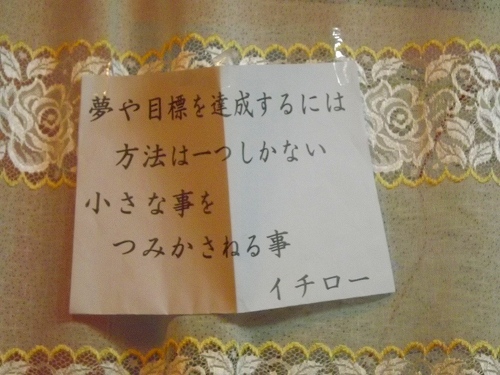 夢や目標を達成するには
方法は一つしかない
小さな事を
つみかさねる事
イチロー